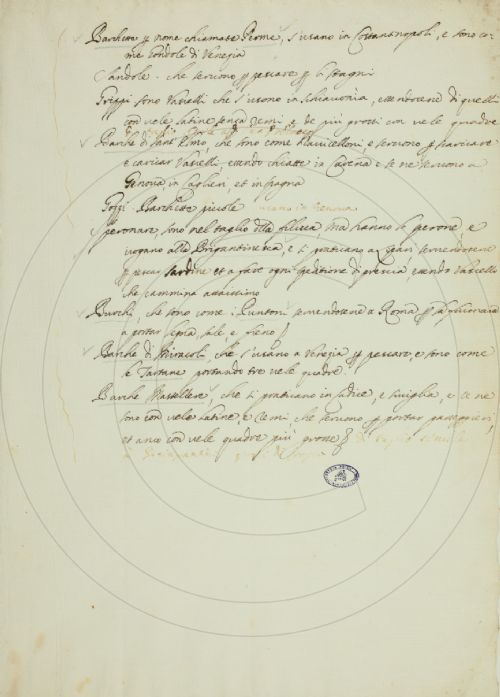 Barchette p nome chiamate Perme, s'usano in Costantinopoli, e sono co-
me Gondole di Venezia
che servono p pescare p li stagni
Grippi sono Vasselli che s'usono in Schiavonia, essendovene di quelli
con vele latine senza Remi, e de più grossi con vele quadre
Barche di Sant'Elmo, che sono come Navicelloni, e servono p scaricare
e caricar Vasselli essendo chiatte in Carena e se ne servono a
Genova, in Caglieri, et in Spagna
Gozzi Barchette piccole usano in Genova
Speronare, sono nel taglio della filuca, ma hanno lo sperone, e
vogano alla Brigantinesca, e si praticano a servendosene
p pescar Sardine et a fare ogni speditione di pressa, essendo Vassello
che cammina assaissimo
Burchi, che sono come i Puntoni servendosene a Roma p la
a portar legna, sale, e fieno
Barche di Miracoli, che s'usano a Venezia p pescare, e sono come
le Tartane portando tre vele quadre.
Barche che si praticano in Cadice, e Siviglia, e ce ne
sono con vele latine e Remi, che servono p portar passeggieri,
et anco con vele quadre più grosse